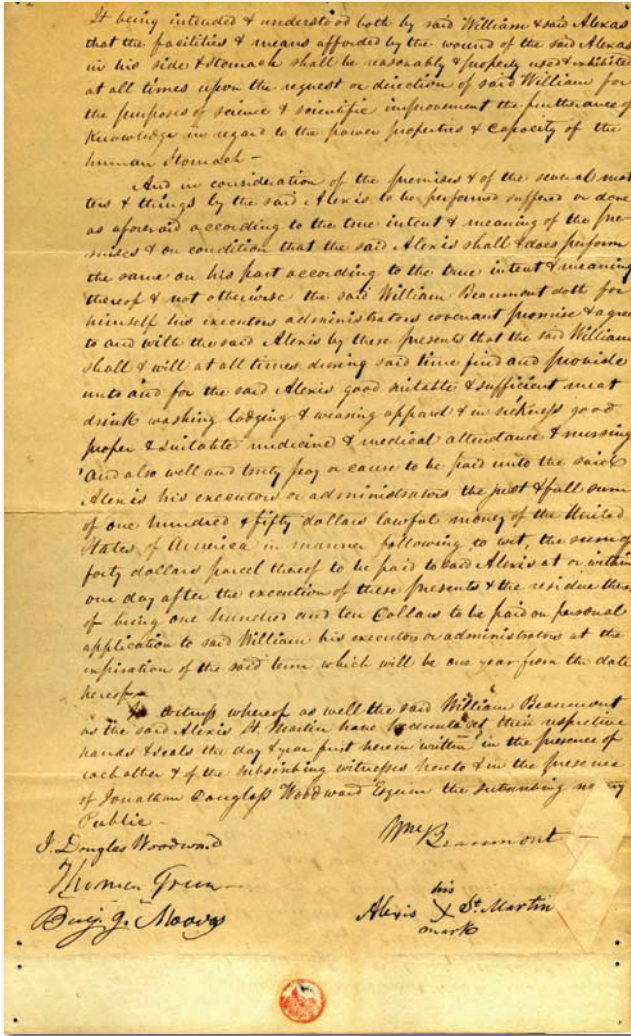 It being intended & understood both by said William & said Alexas
that the facilities & means afforded by the wound of the said Alexas
in his side & Stomach shall be reasonably & properly used & exhibited
at all times upon the request or direction of said William for
the purposes of science & scientific improvement the furtherance of
Knowledge in regard to the power properties & Capacity of the
human Stomach —
And in consideration of the premises & of the several mat
ters & things by the said Alexis to be performed suffered or done
as aforesaid according to the true intent & meaning of the pre-
mises & on condition that the said Alexis shall & does perform
the same on his part according to the true intent & meaning
thereof & not otherwise the said William Beaumont doth for
himself his executors administrators covenant promise & agree
to and with the said Alexis by these presents that the said William
shall & will at all times during said time find and provide
unto and for the said Alexis good suitable & sufficient meat
drink washing lodging & wearing apparel & in sickness good
proper & suitable medicine & medical attendance & nursing
And also well and truly pay or cause to be paid unto the said
Alexis his executors or administrators the just & full sum
of one hundred & fifty dollars lawful money of the United
States of America in manner following to wit, the sum of
forty dollars parcel thereof to be paid to said Alexis at or within
one day after the execution of these presents & the residue there
of being one hundred and ten Dollars to be paid on personal
application to said William his executors or administrators at the
expiration of the said term which will be one year from the date
hereof —
In witness whereof as well the said William Beaumont
as the said Alexis St Martin have hereunto set their respective
hands & seals the day & year first herein written in the presence of
each other & of the subscribing witnesses hereto & in the presence
of Jonathan Douglass Woodward Esquire the subscribing notary
Public —
J. Douglas Woodward
Wm Beaumont —
Thomas Green —
his
Alexis X St. Martin
mark
Benj. J. Mooers